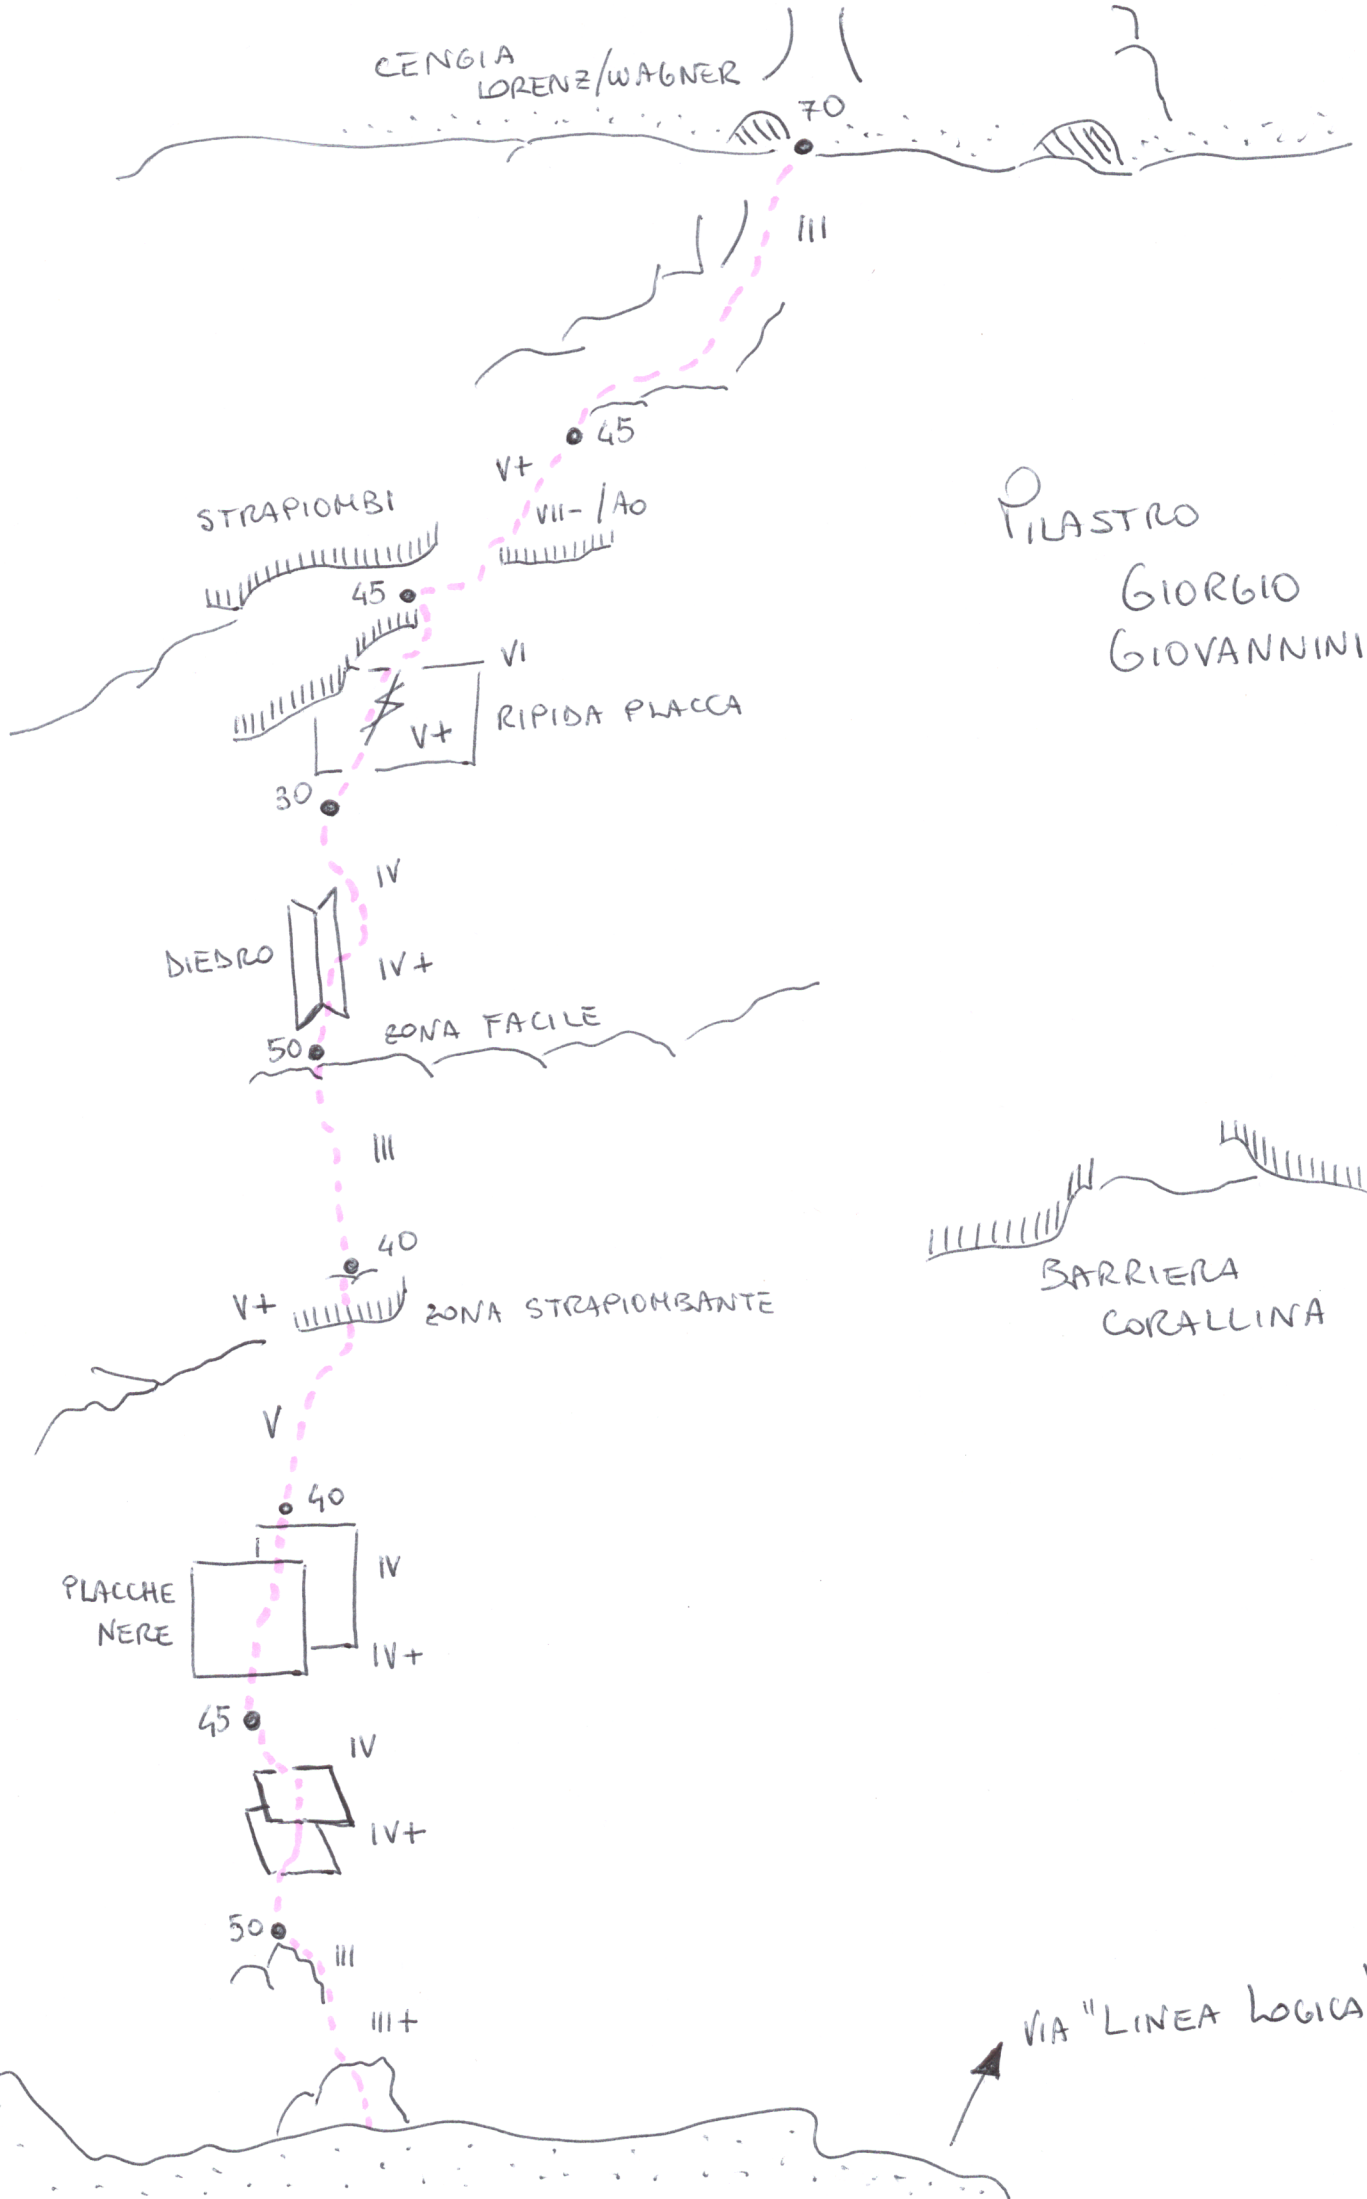 CENGIA
LORENZ/WAGNER
70
III
45
V+
VII-/A0
STRAPIOMBI
45
PILASTRO
GIORGIO
GIOVANNINI
VI
RIPIDA PLACCA
V+
30
IV
DIEDRO
IV+
ZONA FACILE
50
III
40
V+
ZONA STRAPIOMBANTE
BARRIERA
CORALLINA
V
40
IV
PLACCHE
NERE
IV+
45
IV
IV+
50
III
III+
VIA "LINEA LOGICA"